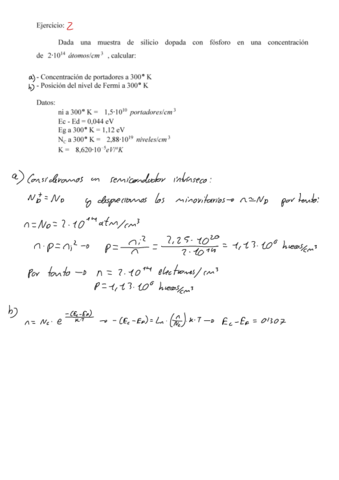 Ejercicio: 2
Dada una muestra de silicio dopada con fósforo en una concentración
de 2·10¹⁴ átomos/cm³ , calcular:
a) - Concentración de portadores a 300º K
b) - Posición del nivel de Fermi a 300º K
Datos:
ni a 300º K = 1,5·10¹⁰ portadores/cm³
Ec - Ed = 0,044 eV
Eg a 300º K = 1,12 eV
N_C a 300º K = 2,88·10¹⁹ niveles/cm³
K = 8,620·10⁻⁵ eV/ºK
a) Consideramos un semiconductor intrínseco:
N_D⁺ = N_D y despreciamos los minoritarios → n = N_D por tanto:
n = N_D = 2·10¹⁴ atm/cm³
n · p = n_i² → p = n_i²/n = 2,25·10²⁰/2·10¹⁴ = 1,13·10⁶ huecos/cm³
Por tanto → n = 2·10¹⁴ electrones/cm³
P = 1,13·10⁶ huecos/cm³
b)
n = N_c · e^(-(E_c-E_F)/K·T) → -(E_c-E_F) = Ln(n/N_c) K·T → E_c - E_F = 0'307